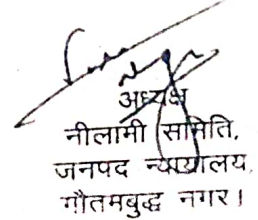 अध्यक्ष
नीलामी समिति,
जनपद न्यायालय,
गौतमबुद्ध नगर।